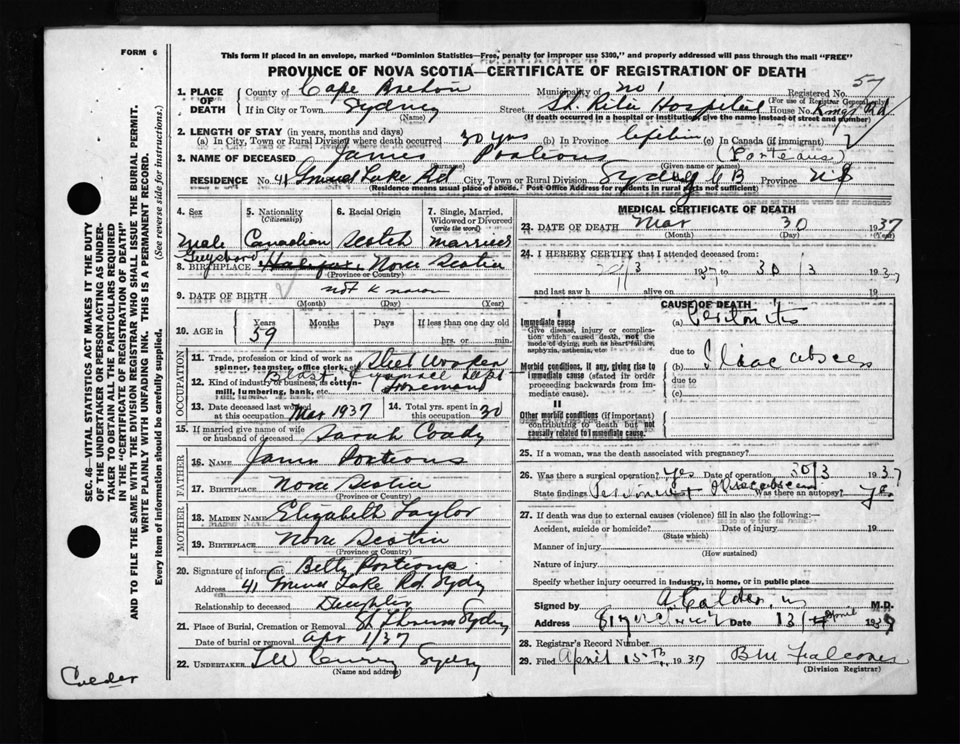 FORM 6
This form if placed in an envelope, marked "Dominion Statistics—Free, penalty for improper use $300," and properly addressed will pass through the mail "FREE"
PROVINCE OF NOVA SCOTIA—CERTIFICATE OF REGISTRATION OF DEATH
57
1. PLACE OF DEATH
County of Cape Breton Municipality of No 1 Registered No.
(For use of Registrar General only)
If in City or Town Sydney Street St. Rita Hospital House No. Kings Rd
(Name) (If death occurred in a hospital or institution give the name instead of street and number)
2. LENGTH OF STAY (in years, months and days)
(a) In City, Town or Rural Division where death occurred 30 yrs (b) In Province lifetime (c) In Canada (if immigrant)
3. NAME OF DECEASED James Porteous (Porteaus)
(Surname) (Given name or names)
RESIDENCE No. 41 Grand Lake Rd City, Town or Rural Division Sydney C B Province N S
(Residence means usual place of abode. Post Office Address for residents in rural parts not sufficient)
4. Sex
5. Nationality (Citizenship)
6. Racial Origin
7. Single, Married, Widowed or Divorced (write the word)
Male Canadian Scotch Married
Guysboro
8. BIRTHPLACE Halifax, Nova Scotia
(Province or Country)
9. DATE OF BIRTH not known
(Month) (Day) (Year)
10. AGE in
Years Months Days If less than one day old
59 hrs. or min.
OCCUPATION
11. Trade, profession or kind of work as spinner, teamster, office clerk, etc. Steel Worker
12. Kind of industry or business, as cotton-mill, lumbering, bank, etc. Foreman
13. Date deceased last worked at this occupation Mar 1937
14. Total yrs. spent in this occupation 30
15. If married give name of wife or husband of deceased Sarah Coady
FATHER
16. NAME James Porteous
17. BIRTHPLACE Nova Scotia
(Province or Country)
MOTHER
18. MAIDEN NAME Elizabeth Taylor
19. BIRTHPLACE Nova Scotia
(Province or Country)
20. Signature of informant Betty Porteous
Address 41 Grand Lake Rd. Sydney
Relationship to deceased Daughter
21. Place of Burial, Cremation or Removal Sydney
Date of burial or removal Apr 1/37
22. UNDERTAKER Sydney
(Name and address)
MEDICAL CERTIFICATE OF DEATH
23. DATE OF DEATH Mar 30 1937
(Month) (Day) (Year)
24. I HEREBY CERTIFY that I attended deceased from:
/3 1937 to 30/3 1937
and last saw h alive on 19
CAUSE OF DEATH
I
Immediate cause (a) Peritonitis
Give disease, injury or complication which caused death, not the mode of dying, such as heart failure, asphyxia, asthenia, etc.
due to
Morbid conditions, if any, giving rise to immediate cause (stated in order proceeding backwards from immediate cause).
(b) Iliac abscess
due to
(c)
II
Other morbid conditions (if important) contributing to death but not causally related to immediate cause.
25. If a woman, was the death associated with pregnancy?
26. Was there a surgical operation? Yes Date of operation 30/3 1937
State findings Was there an autopsy? Yes
27. If death was due to external causes (violence) fill in also the following:—
Accident, suicide or homicide? Date of injury 19
(State which)
Manner of injury
(How sustained)
Nature of injury
Specify whether injury occurred in industry, in home, or in public place
Signed by A Calder M.D.
Address Date 13 April 1937
28. Registrar's Record Number
29. Filed April 15th 1937 B M Falconer
(Division Registrar)
SEC. 46—VITAL STATISTICS ACT MAKES IT THE DUTY OF THE UNDERTAKER OR PERSON ACTING AS UNDERTAKER TO OBTAIN ALL THE PARTICULARS REQUIRED IN THE "CERTIFICATE OF REGISTRATION OF DEATH" AND TO FILE THE SAME WITH THE DIVISION REGISTRAR WHO SHALL ISSUE THE BURIAL PERMIT.
WRITE PLAINLY WITH UNFADING INK. THIS IS A PERMANENT RECORD.
Every item of information should be carefully supplied. (See reverse side for instructions.)
Calder